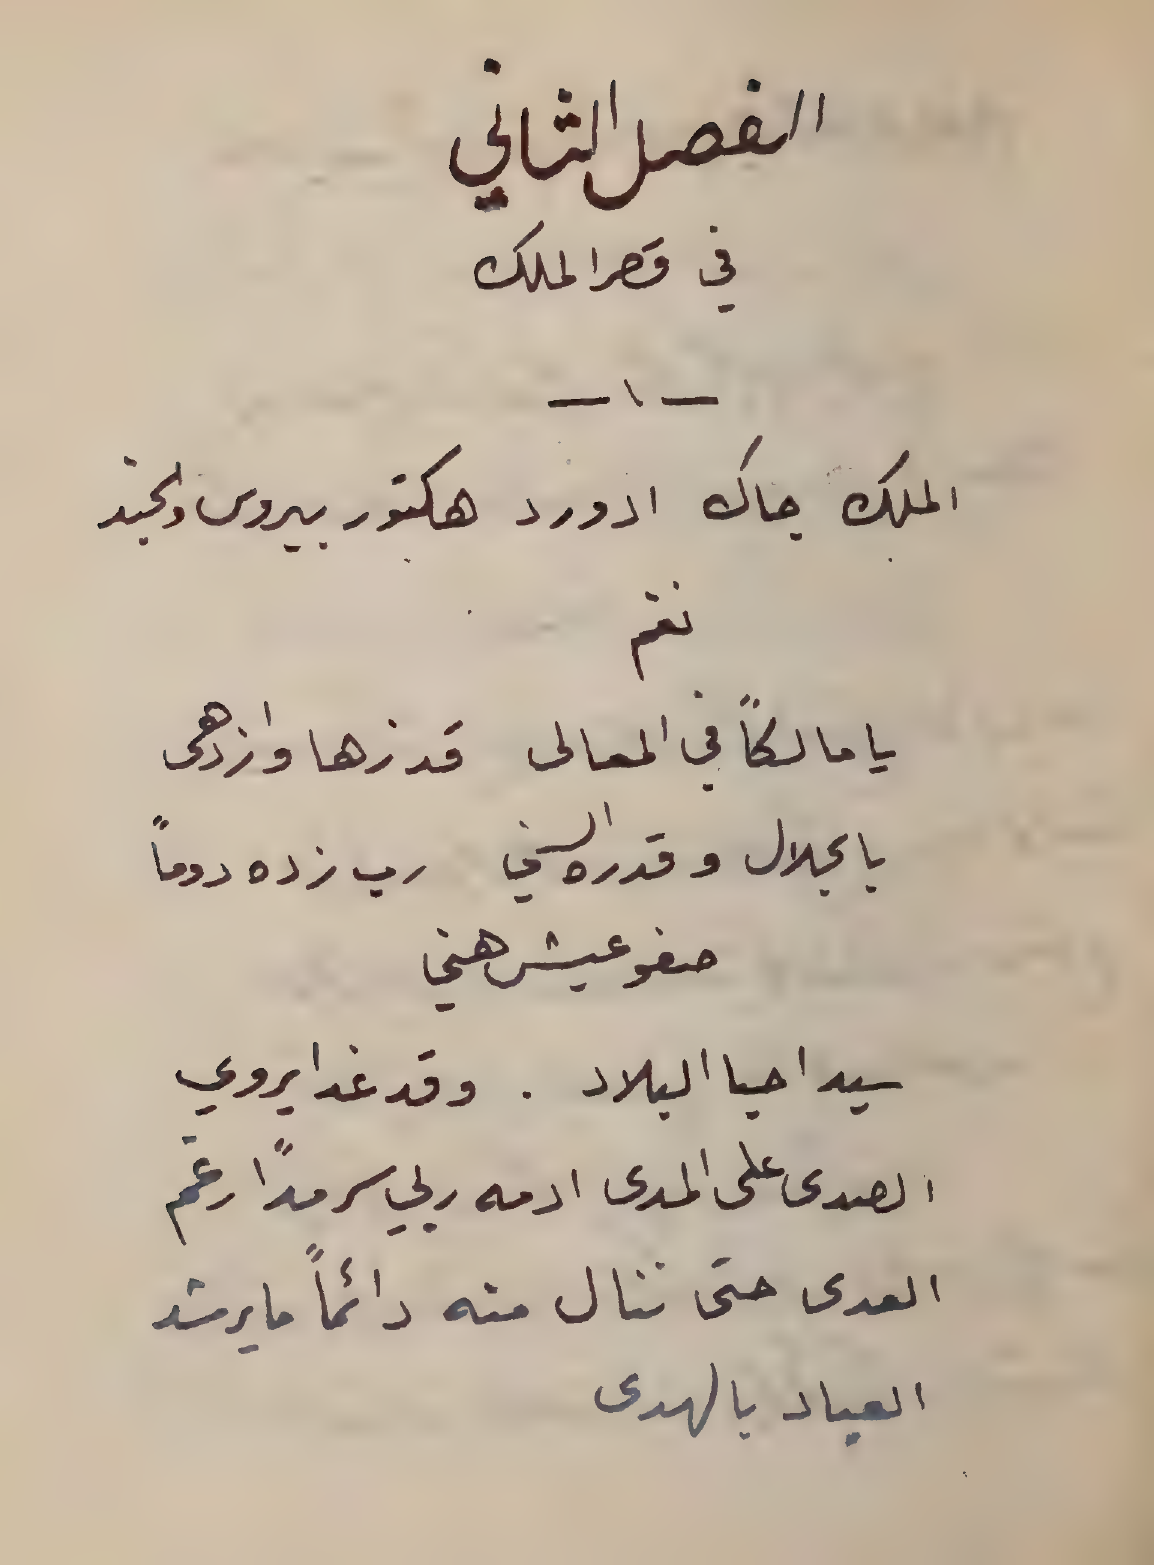 الفصل الثاني
في قصر الملك
— ١ —
الملك جاك ادورد هكتور بيروس والجند
نغم
يا مالكاً في المعالى قد زها وازدهى
بالجلال وقدره السني رب زده دوماً
صفو عيش هني
سيد احيا البلاد . وقد غدا يروي
الصدى على المدى ادمه ربي سرمدًا رغم
العدى حتى ننال منه دائماً ما يرشد
العباد بالهدى